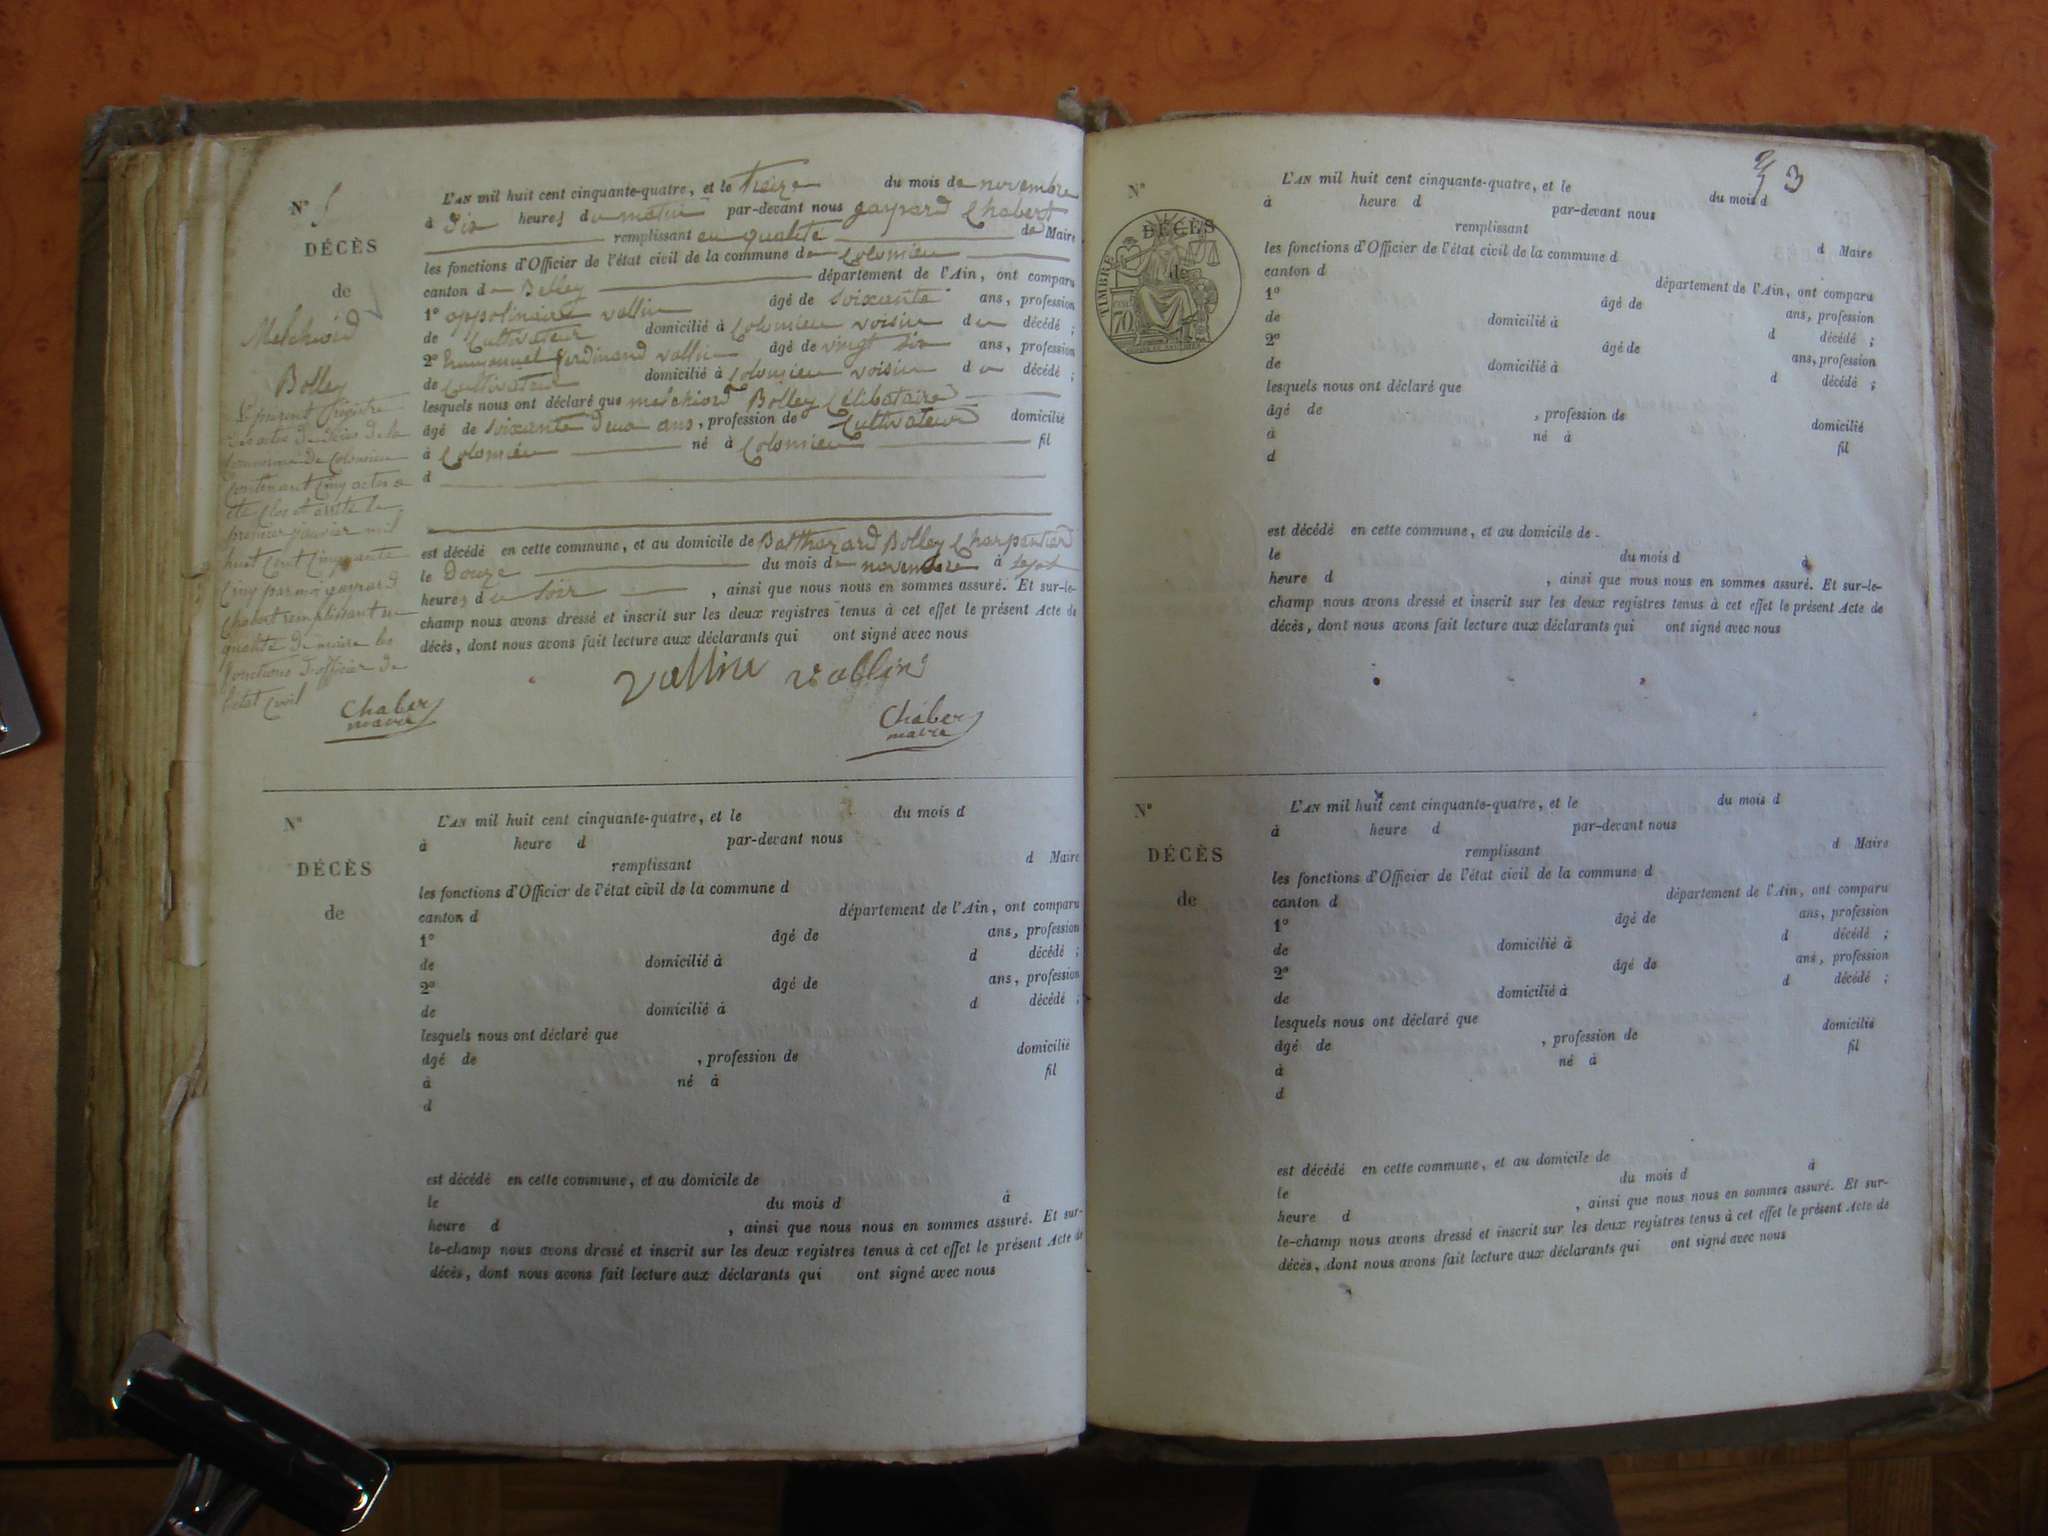 N° 5
DÉCÈS
de
Melchiord
Bolley
Le present registre
des actes de décès de la
commune de Colomieu
contenant cinq actes a
été clos et arrêté le
premier janvier mil
huit cent cinquante
cinq par moi gaspard
Chabert remplissant en
qualité de maire les
fonctions d'officier de
l'état civil
Chaber
maire
L'AN mil huit cent cinquante-quatre, et le Treize du mois de novembre
à Dix heures du matin par-devant nous gaspard Chabert
remplissant en qualité de Maire
les fonctions d'Officier de l'état civil de la commune de Colomieu
canton de Belley département de l'Ain, ont comparu
1° appolinard vallin âgé de soixante ans, profession
de Cultivateur domicilié à Colomieu voisin du décédé ;
2° Emmanuel ferdinand vallin âgé de vingt six ans, profession
de Cultivateur domicilié à Colomieu voisin du décédé ;
lesquels nous ont déclaré que melchiord Bolley Célibataire
âgé de soixante deux ans, profession de Cultivateur domicilié
à Colomieu né à Colomieu fil
d
est décédé en cette commune, et au domicile de Balthazard Bolley Charpentier
le Douze du mois de novembre à sept
heures du soir , ainsi que nous nous en sommes assuré. Et sur-le-
champ nous avons dressé et inscrit sur les deux registres tenus à cet effet le présent Acte de
décès, dont nous avons fait lecture aux déclarants qui ont signé avec nous
Vallin Vallin
Chaber
maire
N°
DÉCÈS
de
L'AN mil huit cent cinquante-quatre, et le du mois d
à heure d par-devant nous
remplissant d Maire
les fonctions d'Officier de l'état civil de la commune d
canton d département de l'Ain, ont comparu
1° âgé de ans, profession
de domicilié à d décédé ;
2° âgé de ans, profession
de domicilié à d décédé ;
lesquels nous ont déclaré que
âgé de , profession de domicilié
à né à fil
d
est décédé en cette commune, et au domicile de
le du mois d à
heure d , ainsi que nous nous en sommes assuré. Et sur-
le-champ nous avons dressé et inscrit sur les deux registres tenus à cet effet le présent Acte de
décès, dont nous avons fait lecture aux déclarants qui ont signé avec nous
3
N°
DÉCÈS
de
TIMBRE
70
L'AN mil huit cent cinquante-quatre, et le du mois d
à heure d par-devant nous
remplissant d Maire
les fonctions d'Officier de l'état civil de la commune d
canton d département de l'Ain, ont comparu
1° âgé de ans, profession
de domicilié à d décédé ;
2° âgé de ans, profession
de domicilié à d décédé ;
lesquels nous ont déclaré que
âgé de , profession de domicilié
à né à fil
d
est décédé en cette commune, et au domicile de
le du mois d à
heure d , ainsi que nous nous en sommes assuré. Et sur-le-
champ nous avons dressé et inscrit sur les deux registres tenus à cet effet le présent Acte de
décès, dont nous avons fait lecture aux déclarants qui ont signé avec nous
N°
DÉCÈS
de
L'AN mil huit cent cinquante-quatre, et le du mois d
à heure d par-devant nous
remplissant d Maire
les fonctions d'Officier de l'état civil de la commune d
canton d département de l'Ain, ont comparu
1° âgé de ans, profession
de domicilié à d décédé ;
2° âgé de ans, profession
de domicilié à d décédé ;
lesquels nous ont déclaré que
âgé de , profession de domicilié
à né à fil
d
est décédé en cette commune, et au domicile de
le du mois d à
heure d , ainsi que nous nous en sommes assuré. Et sur-
le-champ nous avons dressé et inscrit sur les deux registres tenus à cet effet le présent Acte de
décès, dont nous avons fait lecture aux déclarants qui ont signé avec nous